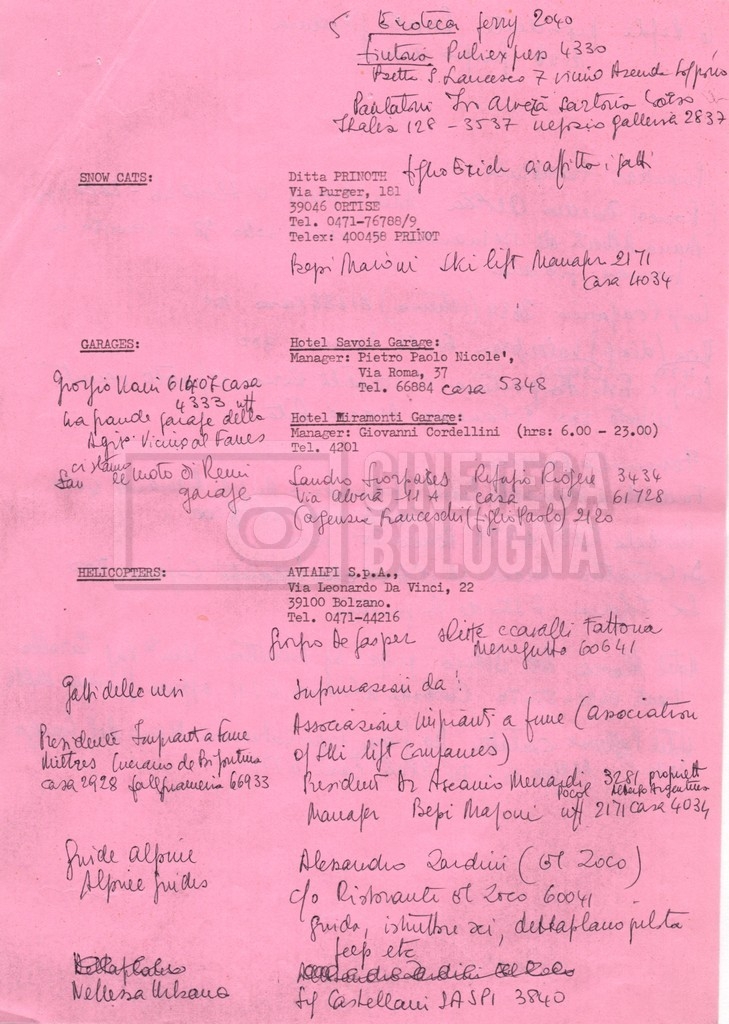 Enoteca ferry 2040
Puliexpress 4330
S. Francesco 7 vicino Azienda
Sartoria
128 - 3537 negozio galleria 2837
SNOW CATS:
Ditta PRINOTH figlio Erich ci affitta i gatti
Via Purger, 181
39046 ORTISE
Tel. 0471-76788/9
Telex: 400458 PRINOT
Bepi Maioni Ski lift Manager 2171
casa 4034
GARAGES:
Hotel Savoia Garage:
Manager: Pietro Paolo Nicole',
Via Roma, 37
Tel. 66884 casa 5348
Giorgio 61407 casa
4333 uff
ha grande garage della
Agip vicino al Fanes
moto di Remi
garage
Hotel Miramonti Garage:
Manager: Giovanni Cordellini (hrs: 6.00 - 23.00)
Tel. 4201
Sandro Rifugio 3434
Via Alverà 11 A casa 61728
(agenzia Franceschi (figlio Paolo) 2120
CINETECA
BOLOGNA
HELICOPTERS:
AVIALPI S.p.A.,
Via Leonardo Da Vinci, 22
39100 Bolzano.
Tel. 0471-44216
Giorgio De Gasper slitte e cavalli Fattoria
Meneguto 60641
Gatti delle nevi
Informazioni da:
Presidente Impianti a fune
casa 2928 falegnameria 66933
Associazione impianti a fune (association
of Ski lift Companies)
President Dr Ascanio Menardi 3281
Manager Bepi Maioni uff 2171 casa 4034
Guide alpine
Alpine guides
Alessandro Zardini (El Zoco)
c/o Ristorante El Zoco 60041
guida, istruttore sci, deltaplano pilota
jeep etc
Nettezza Urbana
Sig Castellani SASPI 3840